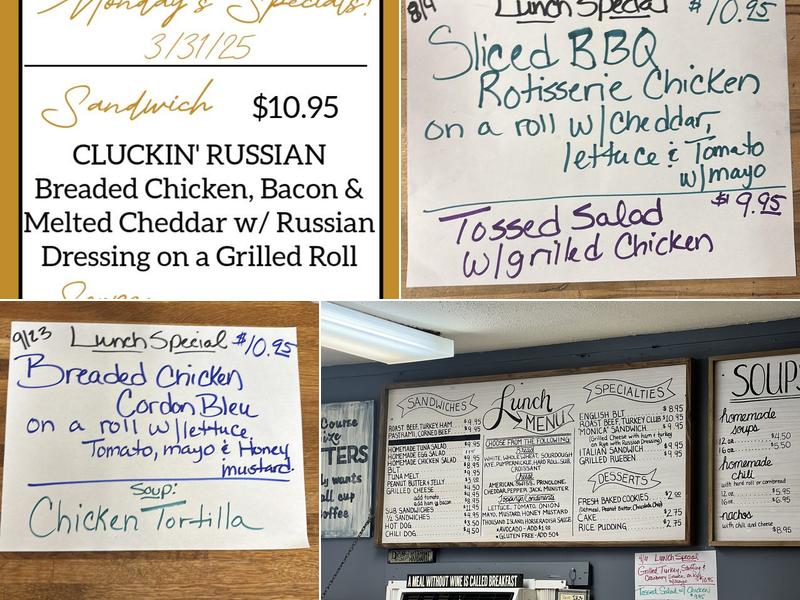 Monday's Specials!
3/31/25
Sandwich $10.95
CLUCKIN' RUSSIAN
Breaded Chicken, Bacon &
Melted Cheddar w/ Russian
Dressing on a Grilled Roll
8/9 Lunch Special $10.95
Sliced BBQ
Rotisserie Chicken
on a roll w/cheddar,
lettuce & Tomato
w/mayo
Tossed Salad $9.95
w/grilled Chicken
9/23 Lunch Special $10.95
Breaded Chicken
Cordon Bleu
on a roll w/lettuce,
Tomato, mayo & Honey
mustard.
Soup:
Chicken Tortilla
Lunch
MENU
SANDWICHES
ROAST BEEF, TURKEY, HAM $9.95
PASTRAMI, CORNED BEEF
HOMEMADE TUNA SALAD
HOMEMADE EGG SALAD
HOMEMADE CHICKEN SALAD
BLT
TUNA MELT
PEANUT BUTTER & JELLY
GRILLED CHEESE
add tomato
add ham or bacon
SUB SANDWICHES
1/2 SANDWICHES
HOT DOG $3.50
CHILI DOG $4.50
CHOOSE FROM THE FOLLOWING
Bread
WHITE, WHOLE WHEAT, SOURDOUGH
RYE, PUMPERNICKLE, HARD ROLL, SUB,
CROISSANT
Cheese
AMERICAN, SWISS, PROVOLONE,
CHEDDAR, PEPPER JACK, MUNSTER
LETTUCE, TOMATO, ONION
MAYO, MUSTARD, HONEY MUSTARD
THOUSAND ISLAND, HORSERADISH SAUCE
• AVOCADO - ADD $1.00
• GLUTEN FREE - ADD 50¢
SPECIALTIES
ENGLISH BLT $8.95
ROAST BEEF, TURKEY CLUB $10.95
"MONICA" SANDWICH $9.95
(Grilled Cheese with ham & turkey
on Rye with Russian Dressing)
ITALIAN SANDWICH $9.95
GRILLED RUEBEN $9.95
DESSERTS
FRESH BAKED COOKIES $2.00
(Oatmeal, Peanut Butter, Chocolate Chip)
CAKE $2.75
RICE PUDDING $2.75
SOUPS
homemade
soups
12 oz $4.50
16 oz $5.50
homemade
chili
with hard roll or cornbread
12 oz $5.95
16 oz $6.95
nachos
with chili and cheese $8.95
A MEAL WITHOUT WINE IS CALLED BREAKFAST
Lunch Special
Grilled Turkey, Stuffing &
Cranberry Sauce, on
Tossed Salad w/ Chicken
$9.95